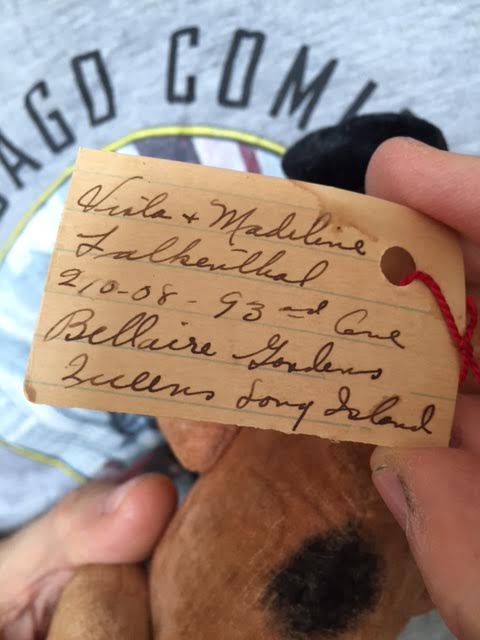 AGO COMI
Viola + Madeline
Falkenthal
210-08 - 93nd Ave
Bellaire Gardens
Queens Long Island